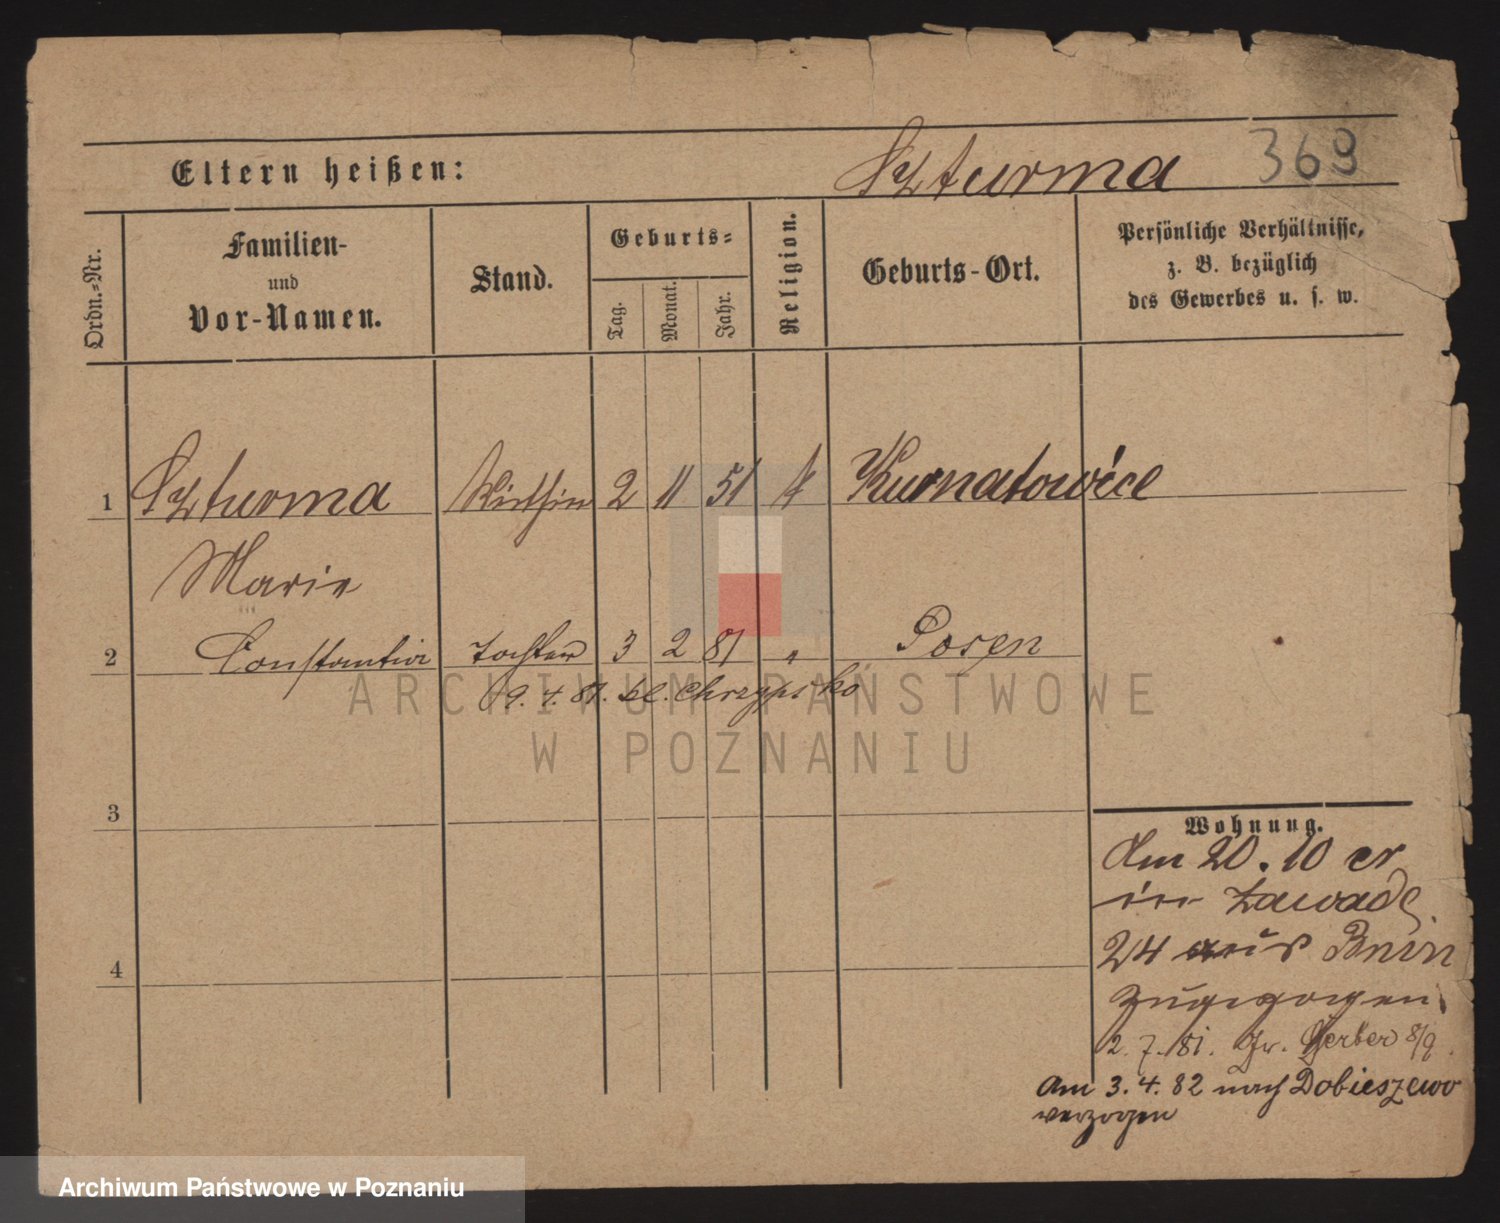 Eltern heißen: Szturma 369
Ordn.-Nr.
Familien-
und
Vor-Namen.
Stand.
Geburts-
Tag.
Monat.
Jahr.
Religion.
Geburts-Ort.
Persönliche Verhältnisse,
z. B. bezüglich
des Gewerbes u. s. w.
1 Szturma 2 11 51 k Kurnatowice
Marie
2 Constantia Tochter 3 2 81 " Posen
9. 4. 81. Chrzypsko
3
4
Wohnung.
Am 20. 10 er
in Zawade
24 aus Bnin
zugezogen.
2. 7. 81. Gr. Gerber 8/9.
Am 3. 4. 82 nach Dobieszewo
verzogen
ARCHIWUM PAŃSTWOWE
W POZNANIU
Archiwum Państwowe w Poznaniu